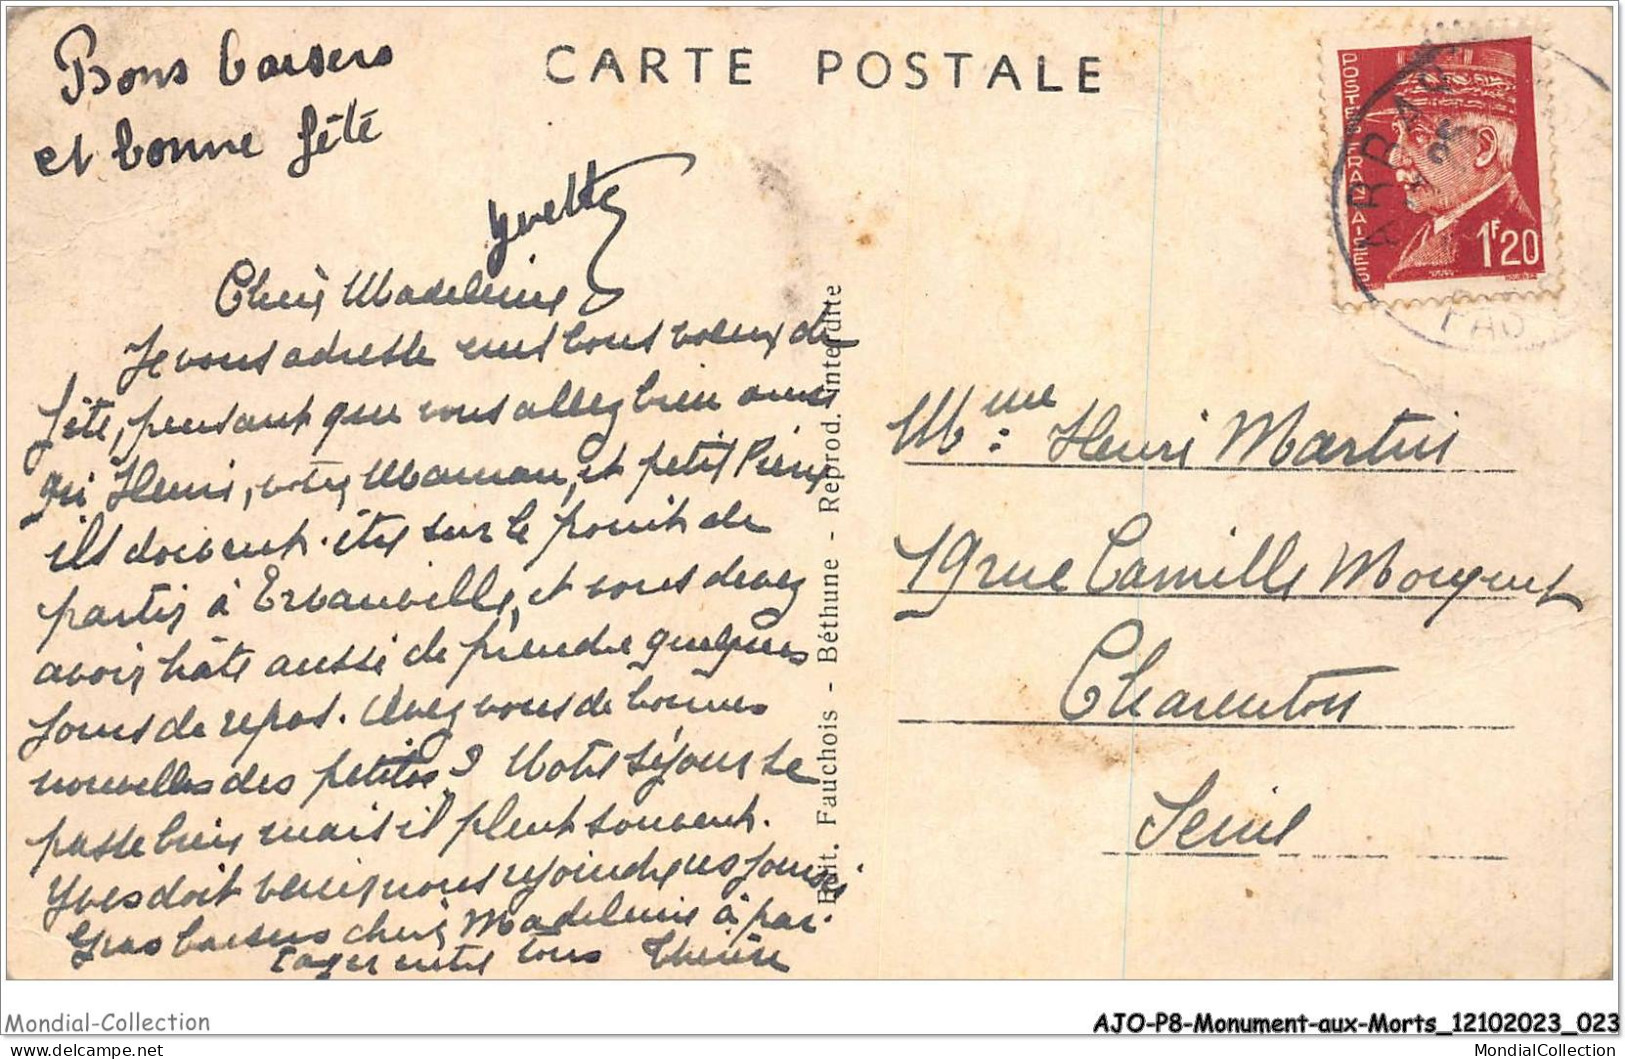 CARTE POSTALE
Bons baisers
et bonne fête
Yvette
POSTES FRANÇAISES
1F20
ARRAS
Chère Madeleine
Je vous adresse mes bons voeux de
fête, pensant que vous allez bien ainsi
qui Henri, votre Maman, et petit Pierre
ils doivent être sur le point de
partir à, et vous devez
avoir hâte aussi de prendre quelques
jours de repos. Avez vous de bonnes
nouvelles des petites? Notre séjour se
passe bien mais il pleut souvent.
Yves doit venir nous rejoindre ces jours ci
Gros baisers chère Madeleine à par-
tager entre tous Thérèse
Edit. Fauchois - Béthune - Reprod. interdite
Mme: Henri Martin
19 rue Camille Mouquet
Charenton
Seine
Mondial-Collection
AJO-P8-Monument-aux-Morts_12102023_023
delcampe.net
MondialCollection